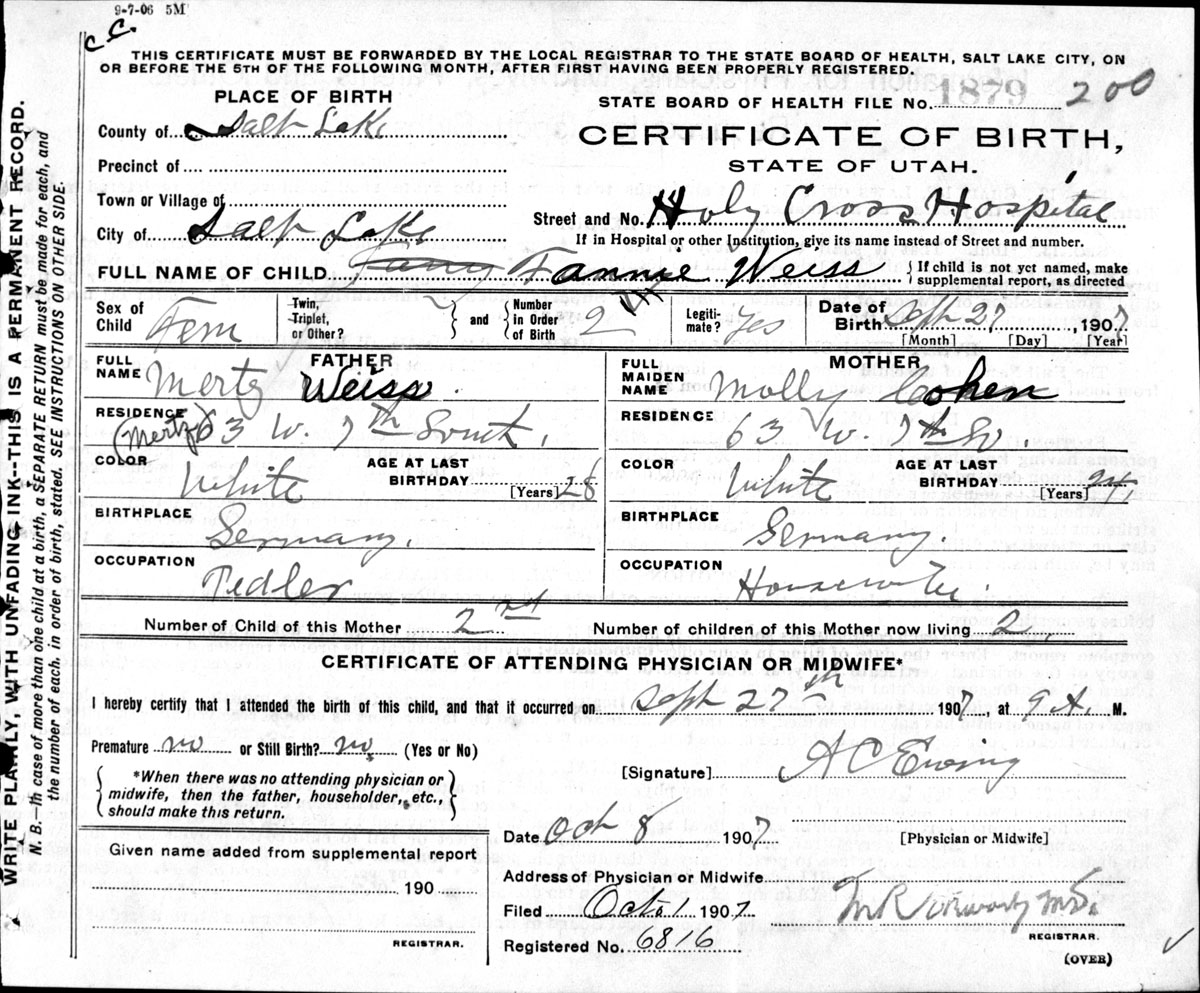 9-7-06 5M
C C.
THIS CERTIFICATE MUST BE FORWARDED BY THE LOCAL REGISTRAR TO THE STATE BOARD OF HEALTH, SALT LAKE CITY, ON
OR BEFORE THE 5TH OF THE FOLLOWING MONTH, AFTER FIRST HAVING BEEN PROPERLY REGISTERED.
WRITE PLAINLY, WITH UNFADING INK--THIS IS A PERMANENT RECORD.
N. B.—In case of more than one child at a birth, a SEPARATE RETURN must be made for each, and
the number of each, in order of birth, stated. SEE INSTRUCTIONS ON OTHER SIDE.
PLACE OF BIRTH
STATE BOARD OF HEALTH FILE No. 1879 200
County of Salt Lake
CERTIFICATE OF BIRTH,
STATE OF UTAH.
Precinct of
Town or Village of
Street and No. Holy Cross Hospital
City of Salt Lake
If in Hospital or other Institution, give its name instead of Street and number.
FULL NAME OF CHILD Fanny Fannie Weiss { If child is not yet named, make
supplemental report, as directed
Sex of Child Fem
Twin, Triplet, or Other? } and { Number in Order of Birth 2
Legiti-mate? Yes
Date of Birth Sept 27, 1907
[Month] [Day] [Year]
FATHER
FULL NAME Mertz Weiss.
MOTHER
FULL MAIDEN NAME Molly Cohen
RESIDENCE (Mertz) 63 W. 7th South.
RESIDENCE 63 W. 7th So.
COLOR White
AGE AT LAST BIRTHDAY 28 [Years]
COLOR White
AGE AT LAST BIRTHDAY 24 [Years]
BIRTHPLACE Germany.
BIRTHPLACE Germany.
OCCUPATION Pedler
OCCUPATION Housewife.
Number of Child of this Mother 2nd
Number of children of this Mother now living 2
CERTIFICATE OF ATTENDING PHYSICIAN OR MIDWIFE*
I hereby certify that I attended the birth of this child, and that it occurred on Sept 27th 1907, at 9 A. M.
Premature no or Still Birth? no (Yes or No)
{ *When there was no attending physician or
midwife, then the father, householder, etc.,
should make this return. }
[Signature] A C Ewing
Date Oct 8 1907
[Physician or Midwife]
Given name added from supplemental report
190
REGISTRAR.
Address of Physician or Midwife
Filed Oct 1 1907
M.D.
REGISTRAR.
Registered No. 6816
(OVER)